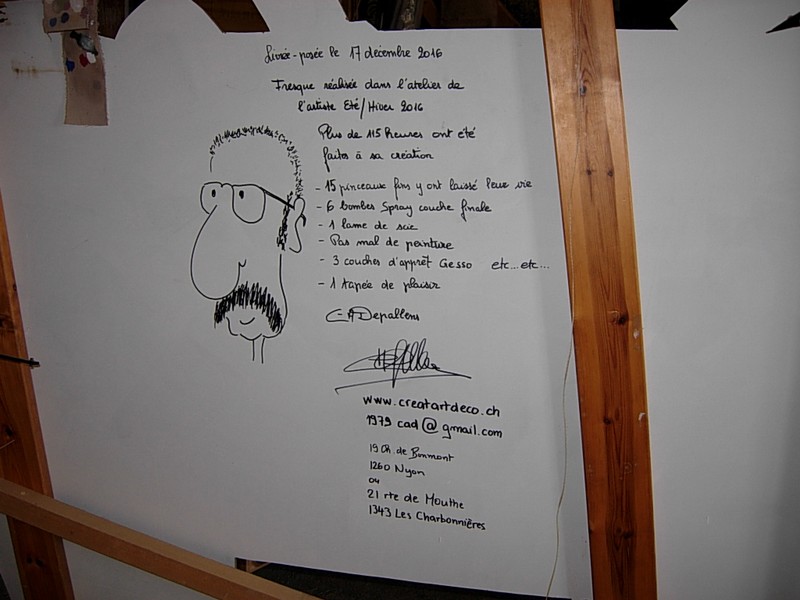 Livrée-posée le 17 décembre 2016
Fresque réalisée dans l'atelier de
l'artiste Eté/Hiver 2016
Plus de 115 heures ont été
faites à sa création
- 15 pinceaux fins y ont laissé leur vie
- 6 bombes Spray couche finale
- 1 lame de scie
- Pas mal de peinture
- 3 couches d'apprêt Gesso etc...etc...
- 1 tapée de plaisir
C-A Depallens
www.creatartdeco.ch
1979 cad@gmail.com
19 Ch. de Bonmont
1260 Nyon
ou
21 rte de Mouthe
1343 Les Charbonnières